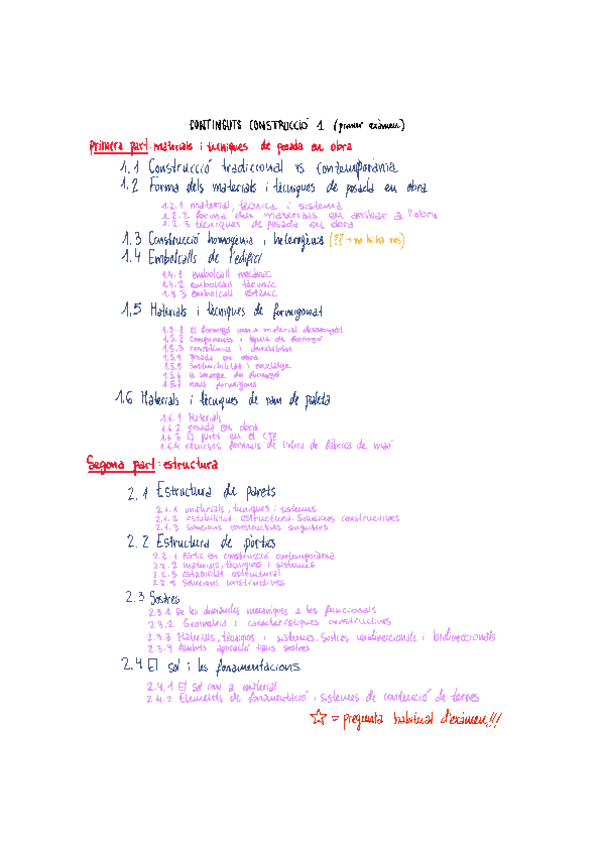 CONTINGUTS CONSTRUCCIÓ 1 (primer exàmen)
primera part: materials i tècniques de posada en obra
1.1 Construcció tradiccional vs contemporània
1.2 Forma dels materials i tècniques de posada en obra
1.2.1 material, tècnica i sistema
1.2.2 forma dels materials en arribar a l'obra
1.2.3 tècniques de posada en obra
1.3 Construcció homogènia i heterogènia (?? → no hi ha res)
1.4 Embolcalls de l'edifici
1.4.1 embolcall mecànic
1.4.2 embolcall tèrmic
1.4.3 embolcall estànc
1.5 Materials i tècniques de formigonat
1.5.1 El formigó com a material
1.5.2 Components i tipus de formigó
1.5.3 resistència i durabilitat
1.5.4 posada en obra
1.5.5 Sostenibilitat i reciclatge
1.5.6 la imatge del formigó
1.5.7 nous formigons
1.6 Materials i tècniques de ram de paleta
1.6.1 Materials
1.6.2 posada en obra
1.6.3 la paret en el CTE
1.6.4 recursos formals de l'obra de fàbrica de maó
Segona part: estructura
2.1 Estructura de parets
2.1.1 materials, tècniques i sistemes
2.1.2 estabilitat estructura. Solucions constructives
2.1.3 solucions constructives singulars
2.2 Estructura de pòrtics
2.2.1 Pòrtic en construcció contemporània
2.2.2 materials, tècniques i sistemes
2.2.3 estabilitat estructural
2.2.4 solucions constructives
2.3 Sostres
2.3.1 De les demandes mecàniques a les funcionals
2.3.2 Geometria i característiques constructives
2.3.3 Materials, tècniques i sistemes. Sostres unidireccionals i bidireccionals
2.3.4 Àmbits aplicació tipus sostres
2.4 El sòl i les fonamentacions
2.4.1 El sòl com a material
2.4.2 Elements de fonamentació i sistemes de contenció de terres
☆ = pregunta habitual d'exàmen!!!